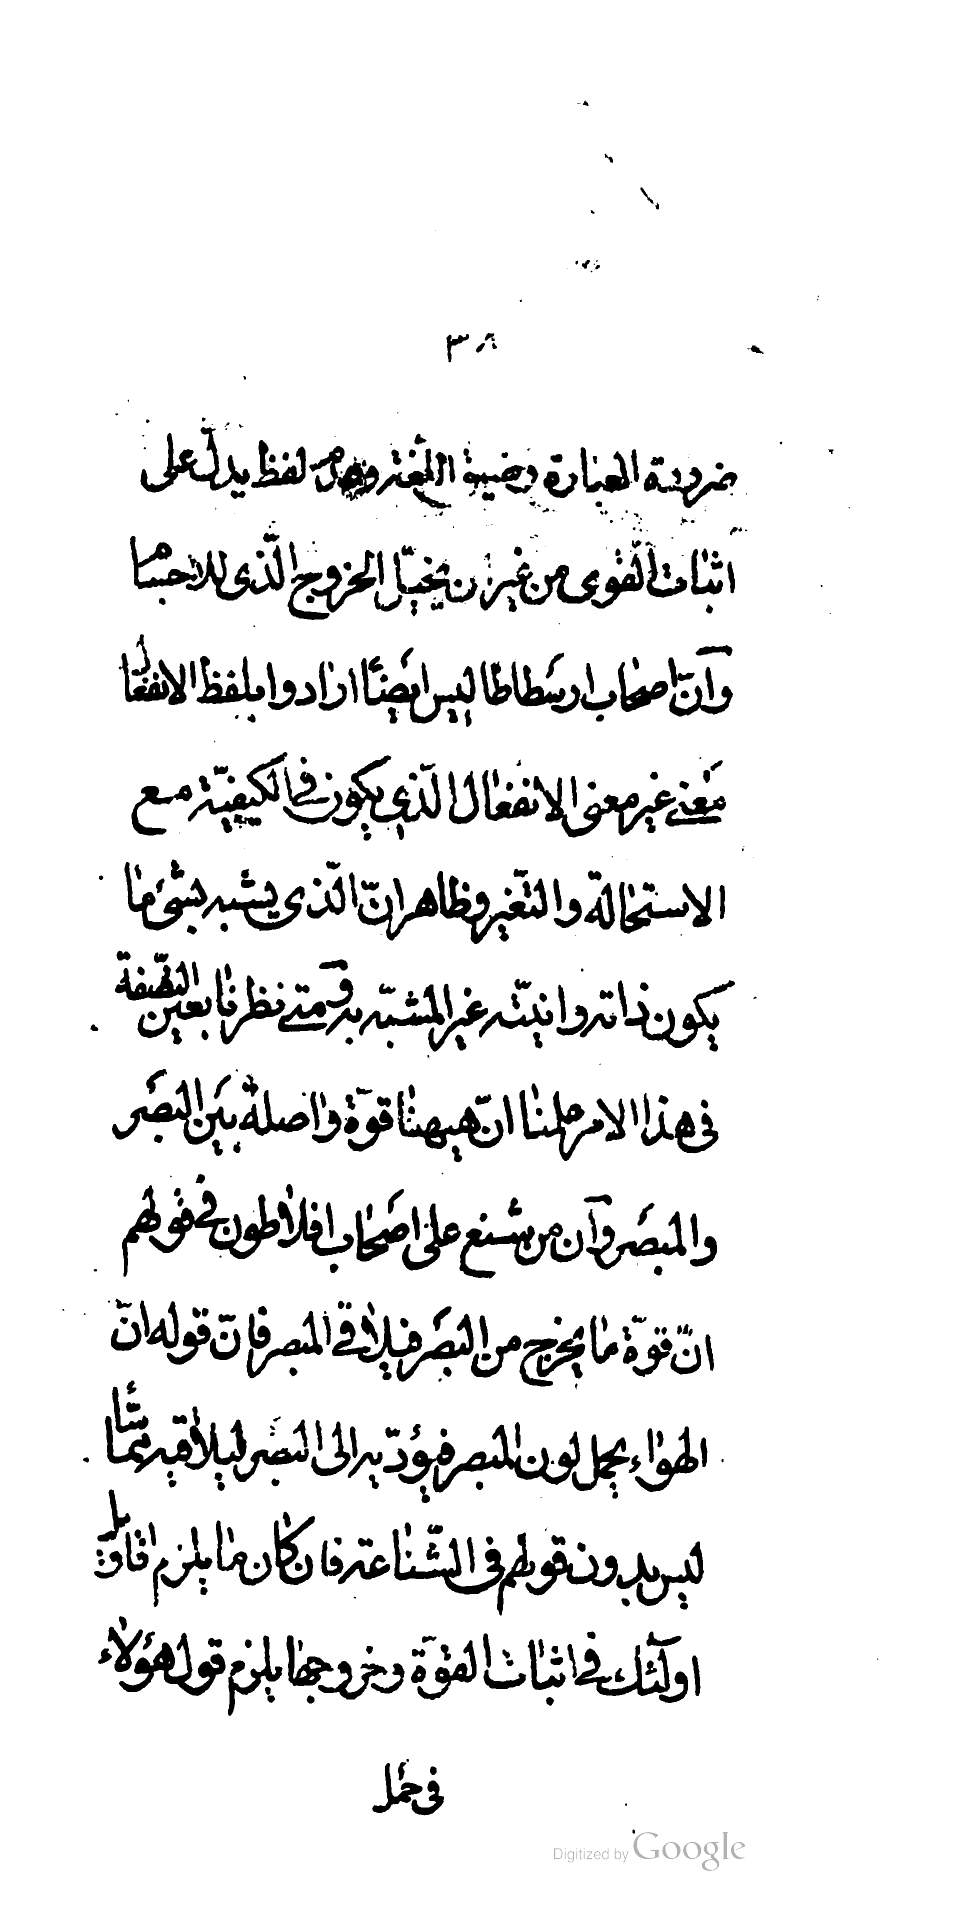 ٣٨
ضرورة العبارة وضيق اللغة وعدم لفظ يدل على
اثبات القوى من غير ان يخيّل الخروج الّذى للاجسام
وآنّ اصحاب ارسطاطاليس ايضًا ارادوا بلفظ الانفعال
معنى غير معنى الانفعال الّذي يكون في الكيفيّة مع
الاستحالة والتّغير وظاهر انّ الّذى يشبه بشئ ما
يكون ذاته وانيّته غير المشبّه به ومتى نظرنا بعين النّصفة
فى هذا الامر علمنا انّ هيهنا قوّة واصلة بين البصر
والمبصر وآن من شنع على اصحاب افلاطون في قولهم
انّ قوّة ما يخرج من البصر فيلاقى المبصر فانّ قوله انّ
الهواء يحمل لون المبصر فيؤدّيه الى البصر ليلاقيه مماسًّا
ليس بدون قولهم فى الشّناعة فان كان ما يلزم اقاويل
اولئك في اثبات القوّة وخروجها يلزم قول هؤلاء
فى حمل
Digitized by Google